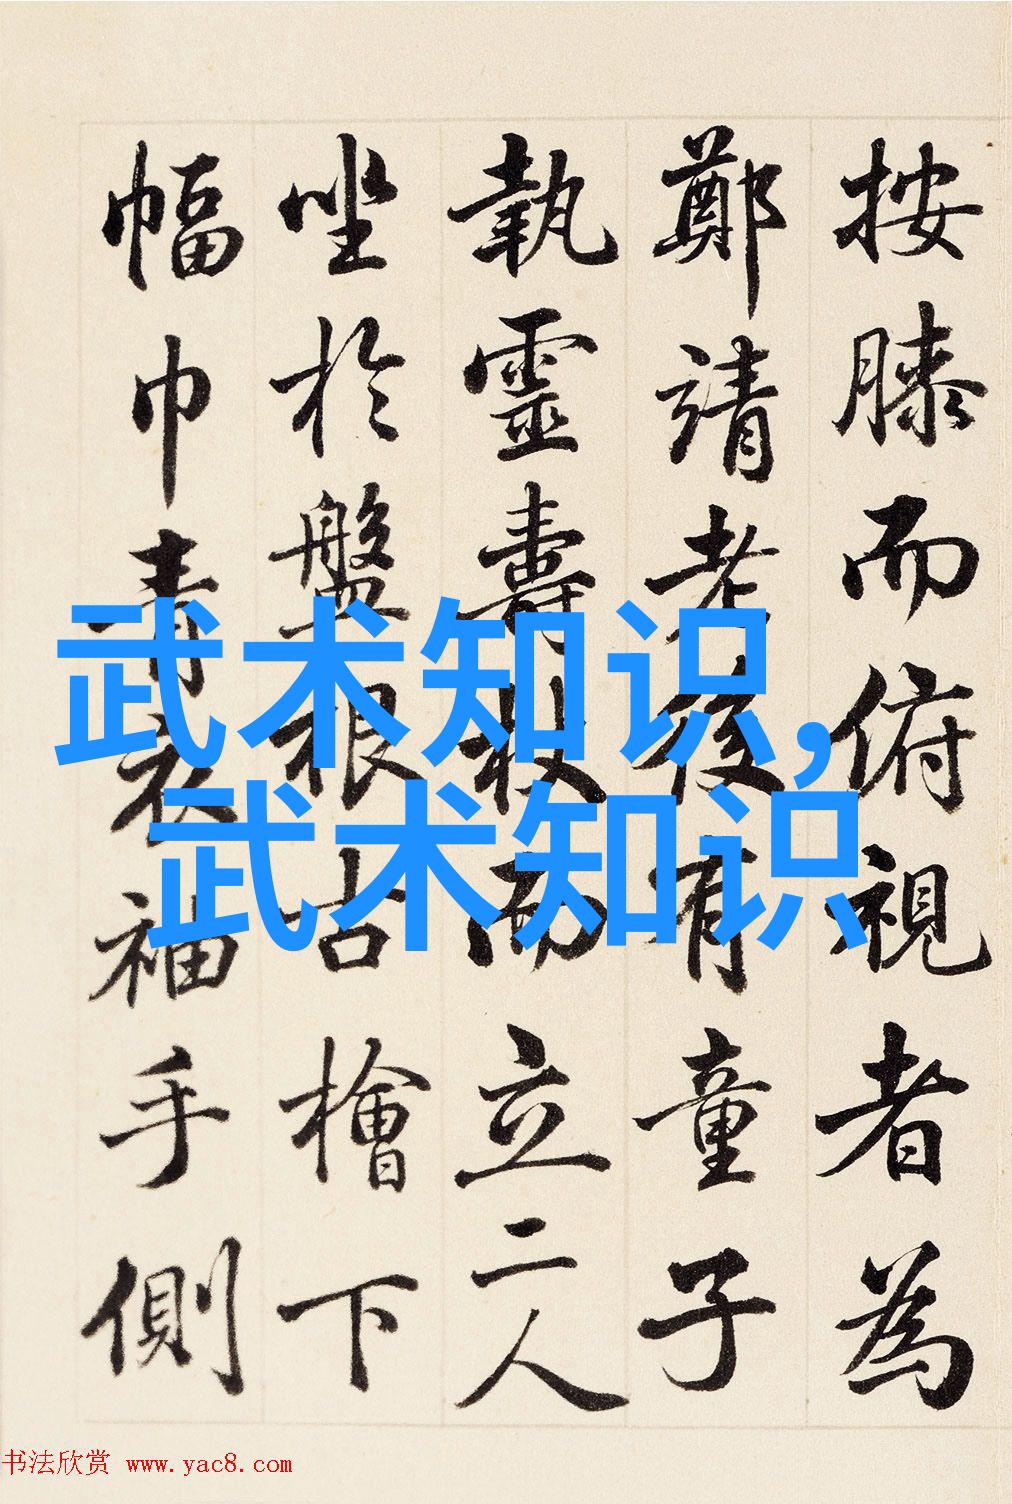 按膝而俯視者為
鄭靖老後有童子
執靈壽杖而立二人
坐於盤根古檜下
幅巾青衣袖手側
武术知识,
武术知识
书法欣赏 www.yac8.com